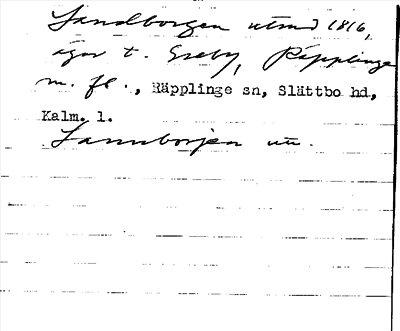 Sandborgen utmd 1816,
ägor t. Greby, Räpplinge
m. fl., Räpplinge sn, Slättbo hd,
Kalm. l.
Sannborjen utt.